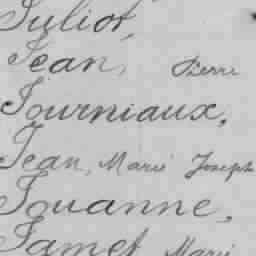 Juliot,
Jean, Pierre
Journiaux,
Jean, Marie Joseph
Jouanne,
Jamet Marie